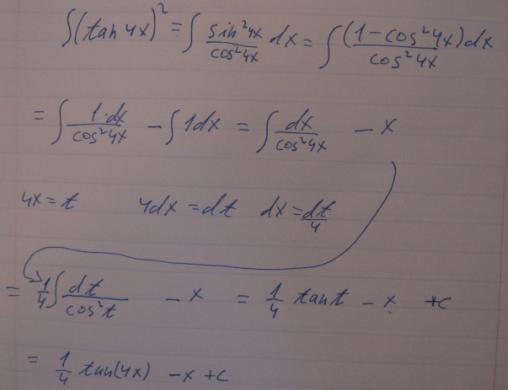 ∫(tan 4x)² = ∫ sin²4x/cos²4x dx = ∫ (1-cos²4x)dx/cos²4x
= ∫ 1·dx/cos²4x - ∫1dx = ∫ dx/cos²4x - x
4x = t 4dx = dt dx = dt/4
= 1/4 ∫ dt/cos²t - x = 1/4 tan t - x + c
= 1/4 tan(4x) - x + c